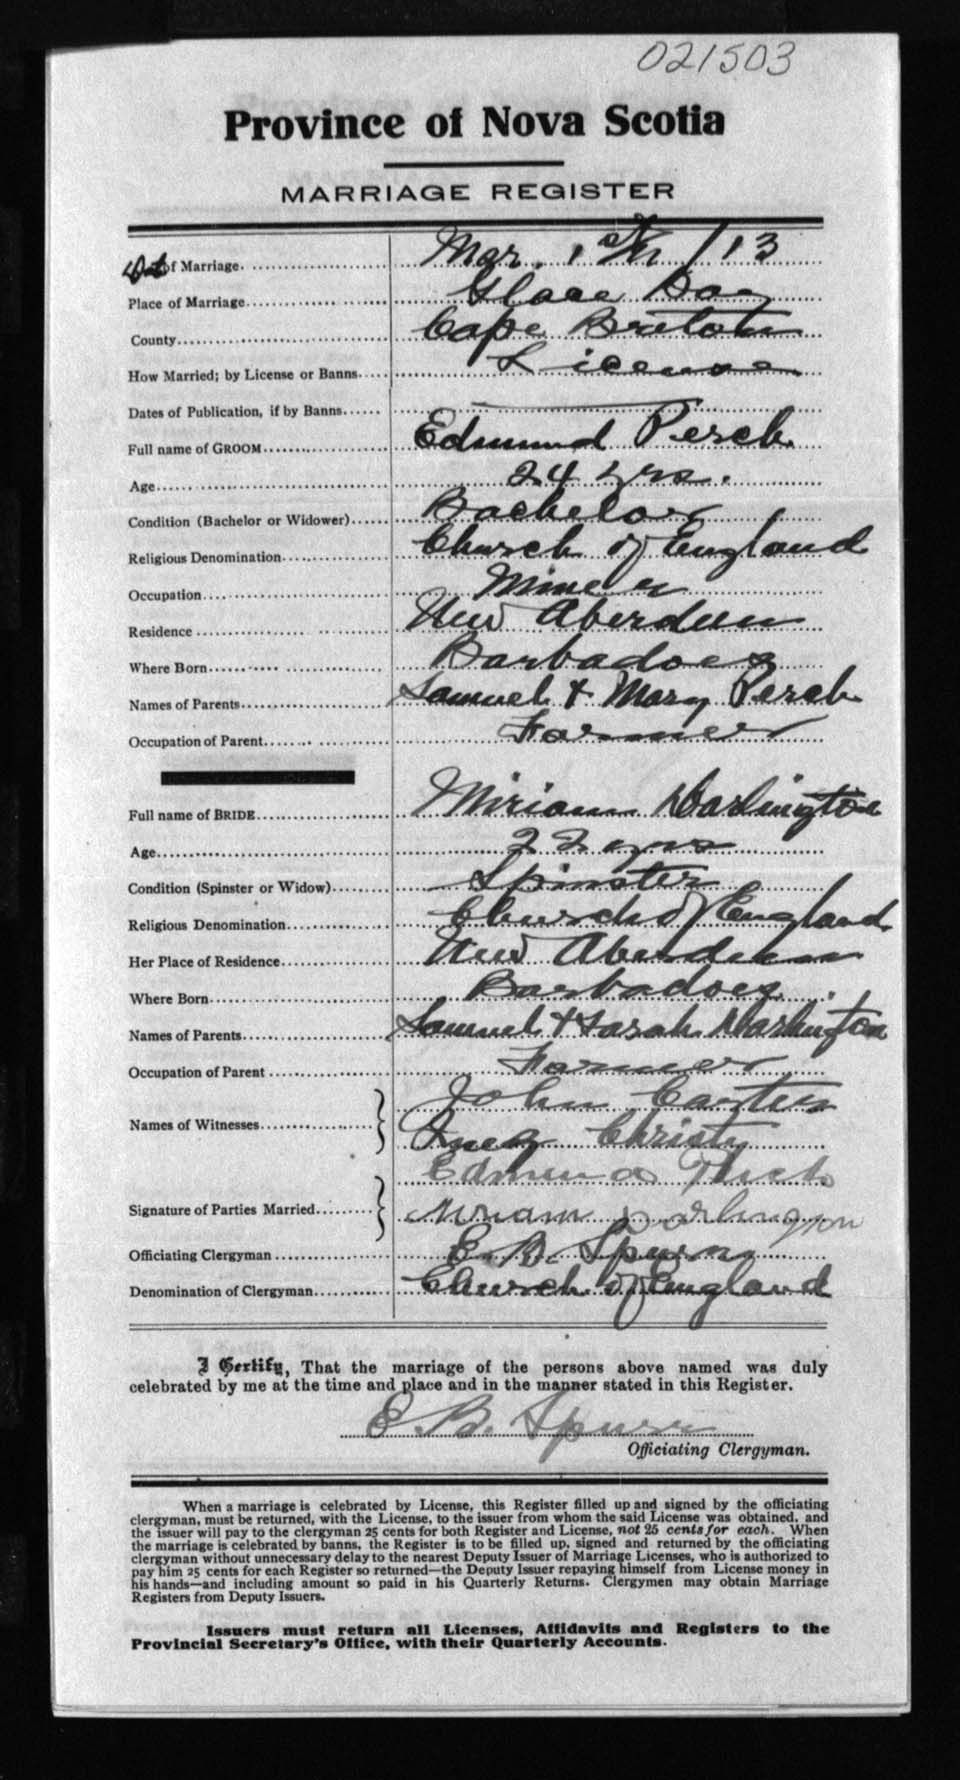 021503
Province of Nova Scotia
MARRIAGE REGISTER
Date of Marriage Mar. 1st / 13
Place of Marriage Glace Bay
County Cape Breton
How Married; by License or Banns License
Dates of Publication, if by Banns
Full name of GROOM Edmund Perch
Age 24 yrs.
Condition (Bachelor or Widower) Bachelor
Religious Denomination Church of England
Occupation Miner
Residence New Aberdeen
Where Born Barbadoes
Names of Parents Samuel & Mary Perch
Occupation of Parent Farmer
Full name of BRIDE Miriam Darlington
Age 22 yrs
Condition (Spinster or Widow) Spinster
Religious Denomination Church of England
Her Place of Residence New Aberdeen
Where Born Barbadoes
Names of Parents Samuel & Sarah Darlington
Occupation of Parent Farmer
Names of Witnesses John Carter
Inez Christy
Signature of Parties Married Edmund
Miriam Darlington
Officiating Clergyman E. B. Spurr
Denomination of Clergyman Church of England
I Certify, That the marriage of the persons above named was duly
celebrated by me at the time and place and in the manner stated in this Register.
E. B. Spurr
Officiating Clergyman.
When a marriage is celebrated by License, this Register filled up and signed by the officiating
clergyman, must be returned, with the License, to the issuer from whom the said License was obtained, and
the issuer will pay to the clergyman 25 cents for both Register and License, not 25 cents for each. When
the marriage is celebrated by banns, the Register is to be filled up, signed and returned by the officiating
clergyman without unnecessary delay to the nearest Deputy Issuer of Marriage Licenses, who is authorized to
pay him 25 cents for each Register so returned—the Deputy Issuer repaying himself from License money in
his hands—and including amount so paid in his Quarterly Returns. Clergymen may obtain Marriage
Registers from Deputy Issuers.
Issuers must return all Licenses, Affidavits and Registers to the
Provincial Secretary's Office, with their Quarterly Accounts.